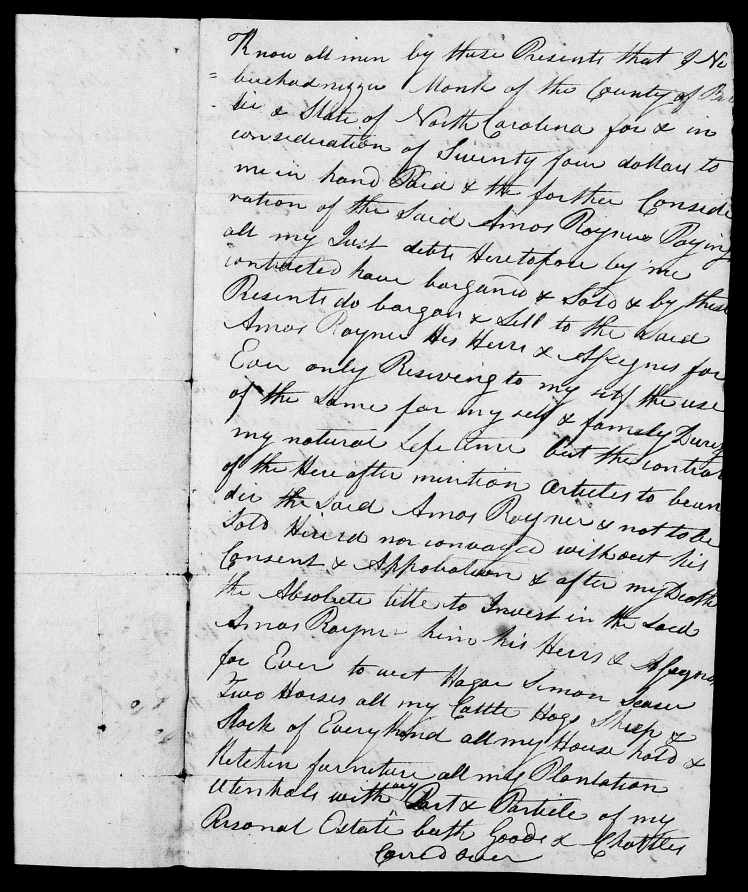 Know all men by these Presents that I Ne
= buchadnezzer Monk of the County of Ber
- tie & State of North Carolina for & in
consideration of Twenty four dollars to
me in hand Paid & the forther Conside
ration of the Said Amos Rayner Paying
all my Just debts Heretofore by me
contracted have bargand & Sold & by these
Presents do bargan & Sell to the Said
Amos Rayner His Heirs & Assignes for
Ever only Reserving to my self the use
of the Same for my self & famely During
my natural Life time but the control
of the Here after mention Articles to be un
der the Said Amos Rayner & not to be
Sold Hierd nor convayed without his
Consent & Approbation & after my Death
the Absolute title to Invest in the Said
Amos Rayner him his Heirs & Assigns
for Ever to wit Hagar Simon Seaser
Two Horses all my Cattle Hogs Sheep &
Stock of Every Kind all my House hold &
Kitchin furniture all my Plantation
Utenhals with Part & Particle of my
Personal Estate both Goods & Chattles
Carred over